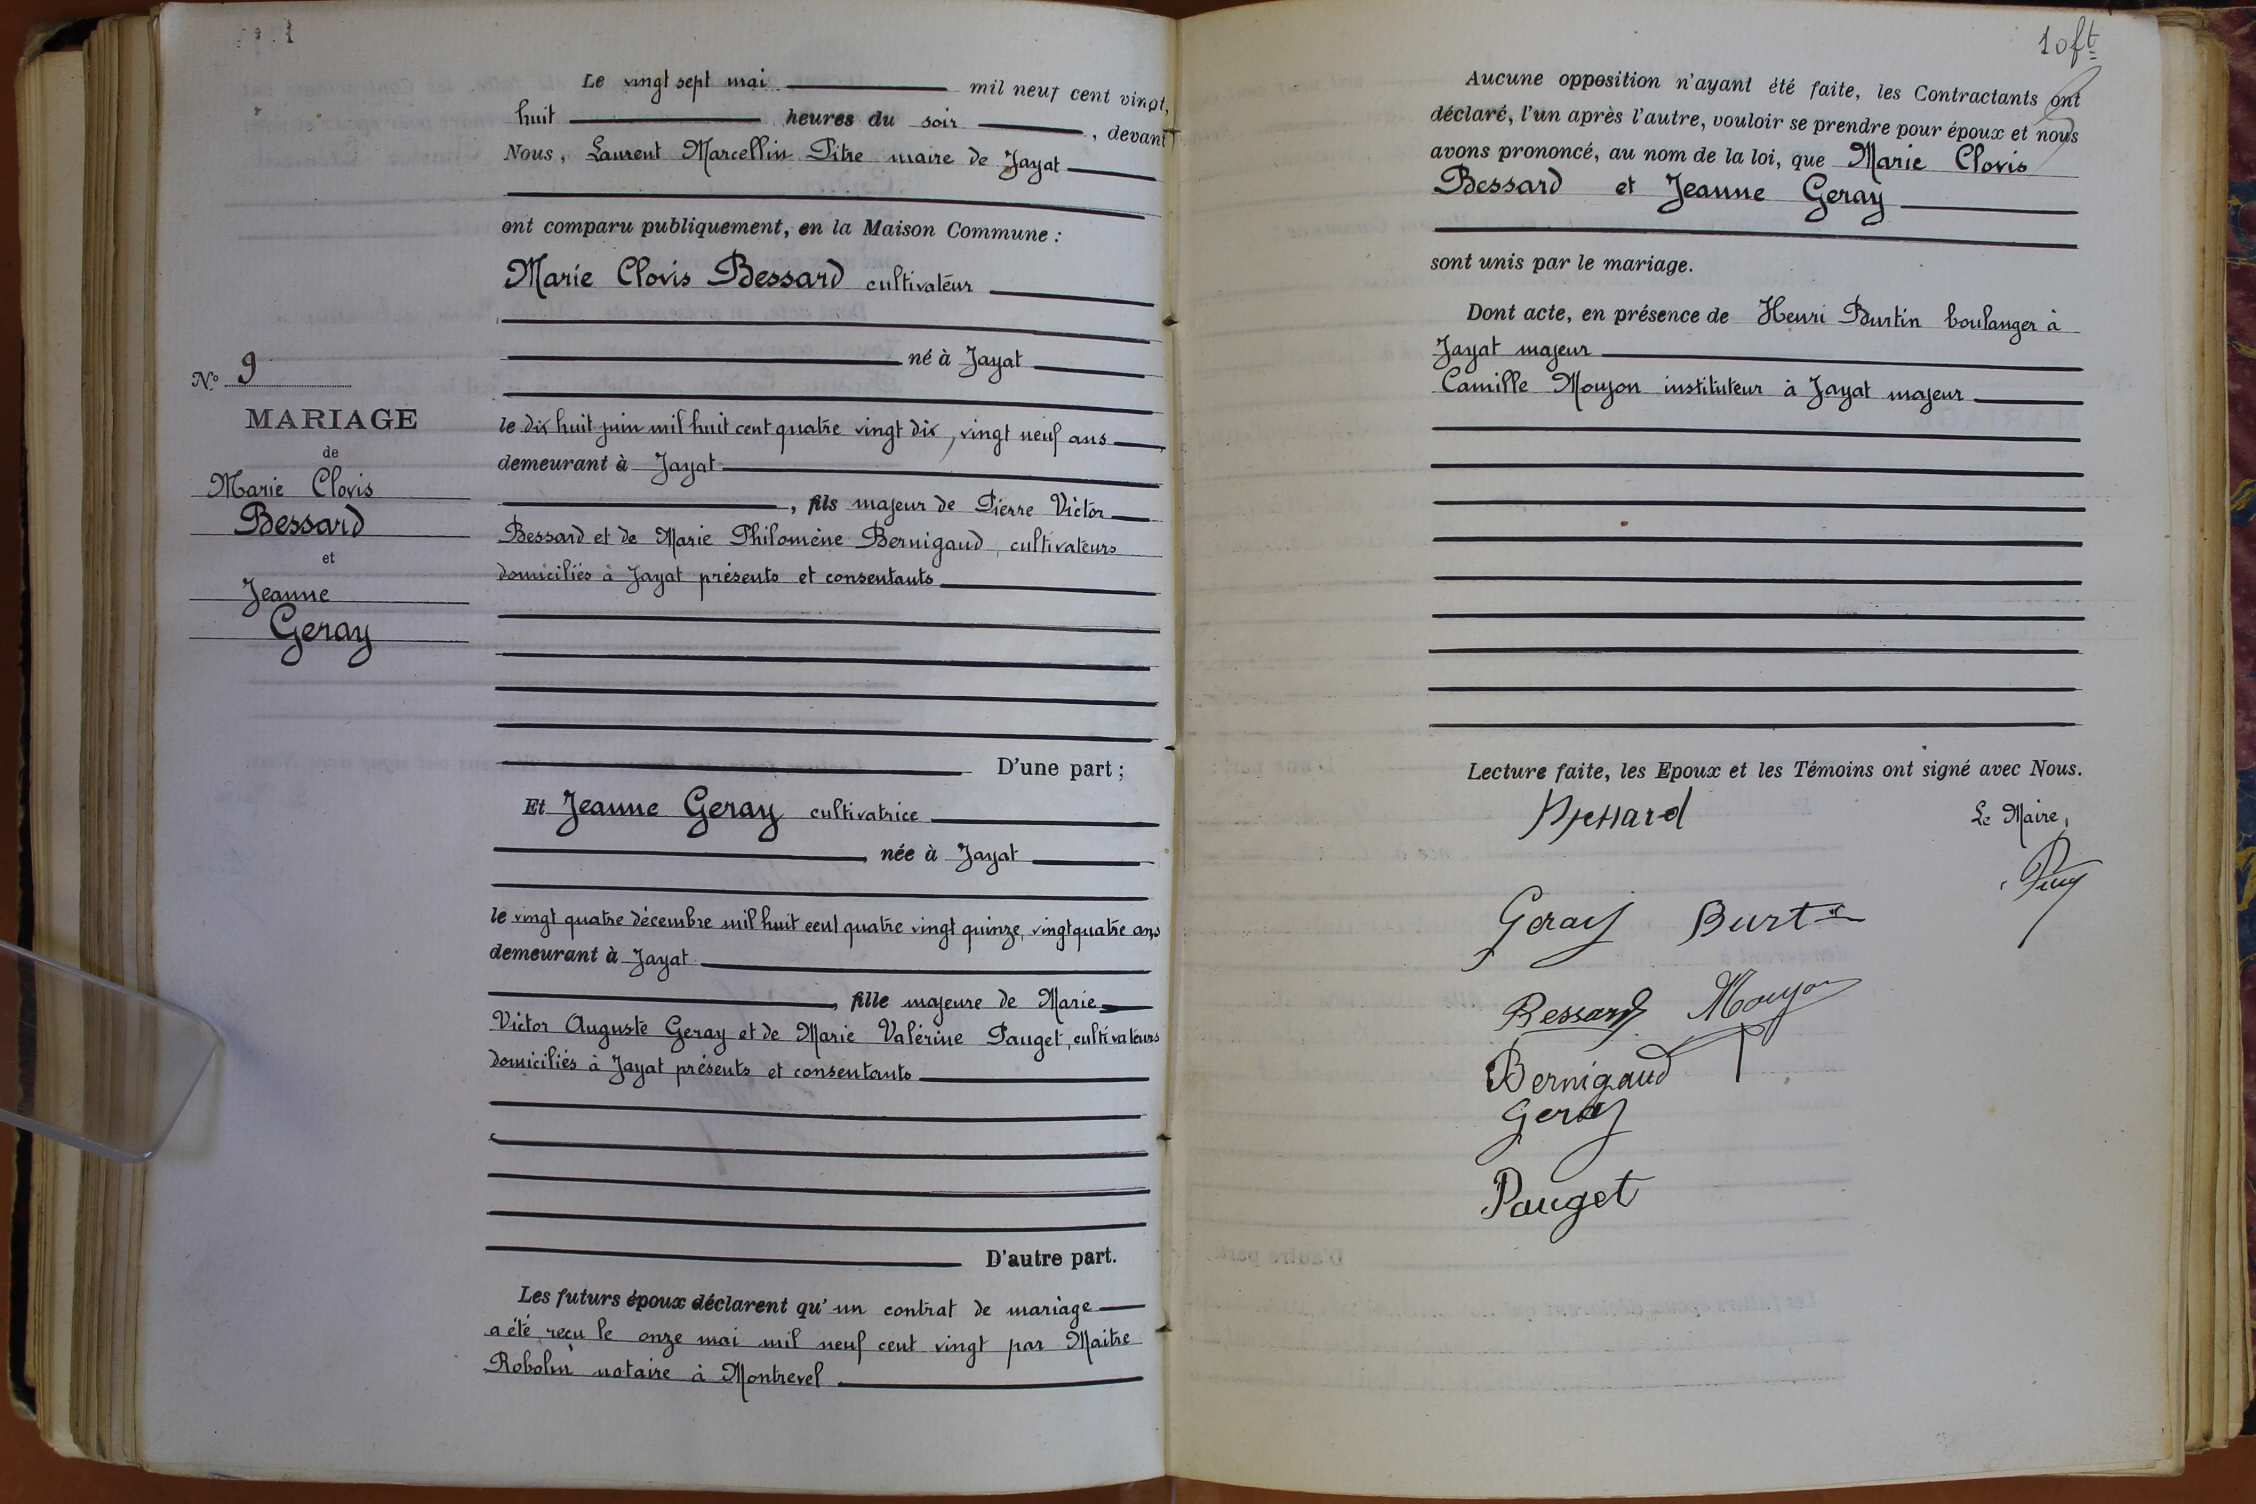 Le vingt sept mai mil neuf cent vingt,
huit heures du soir, devant
Nous, Laurent Marcellin Pitre maire de Jayat
ont comparu publiquement, en la Maison Commune :
Marie Clovis Bessard cultivateur
né à Jayat
le dix huit juin mil huit cent quatre vingt dix, vingt neuf ans
demeurant à Jayat
, fils majeur de Pierre Victor
Bessard et de Marie Philomène Bernigaud, cultivateurs
domiciliés à Jayat présents et consentants
D'une part ;
Et Jeanne Geray cultivatrice
née à Jayat
le vingt quatre décembre mil huit cent quatre vingt quinze, vingt quatre ans
demeurant à Jayat
, fille majeure de Marie
Victor Auguste Geray et de Marie Valérine Pauget, cultivateurs
domiciliés à Jayat présents et consentants
D'autre part.
Les futurs époux déclarent qu'un contrat de mariage
a été reçu le onze mai mil neuf cent vingt par Maitre
Robolin notaire à Montrevel
N° 9
MARIAGE
de
Marie Clovis
Bessard
et
Jeanne
Geray
Aucune opposition n'ayant été faite, les Contractants ont
déclaré, l'un après l'autre, vouloir se prendre pour époux et nous
avons prononcé, au nom de la loi, que Marie Clovis
Bessard et Jeanne Geray
sont unis par le mariage.
Dont acte, en présence de Henri Burtin boulanger à
Jayat majeur
Camille Moyon instituteur à Jayat majeur
Lecture faite, les Epoux et les Témoins ont signé avec Nous.
Bessard
Le Maire,
Geray Burtin
Bessard Moyon
Bernigaud
Geray
Pauget